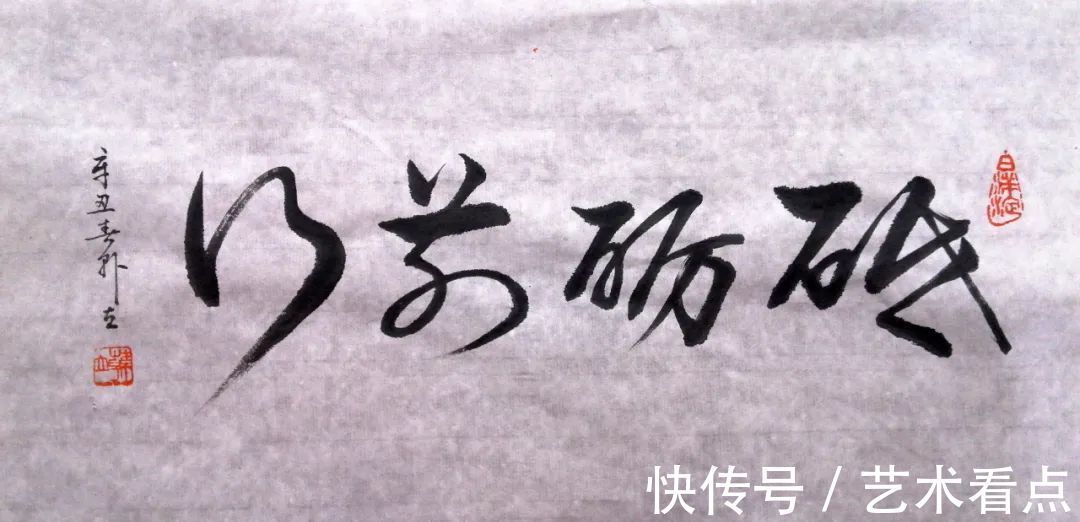 砥砺前行
辛丑春
快传号 / 艺术看点